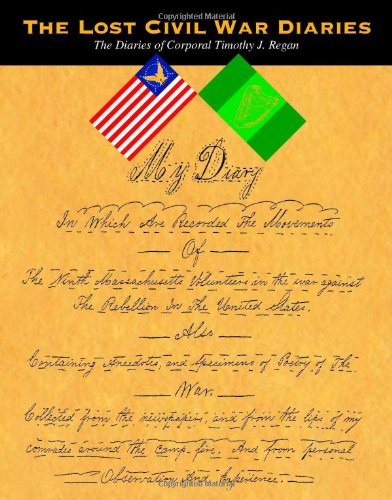 Copyrighted Material
THE LOST CIVIL WAR DIARIES
The Diaries of Corporal Timothy J. Regan
My Diary
In Which Are Recorded The Movements
Of
The Ninth Massachusetts Volunteers in the war against
The Rebellion In The United States.
Also
Containing Anecdotes, and Specimens of Poetry of The
War.
Collected from the newspapers, and from the lips of my
comrades around the camp-fire. And from personal
Observation And Experience.
Copyrighted Material